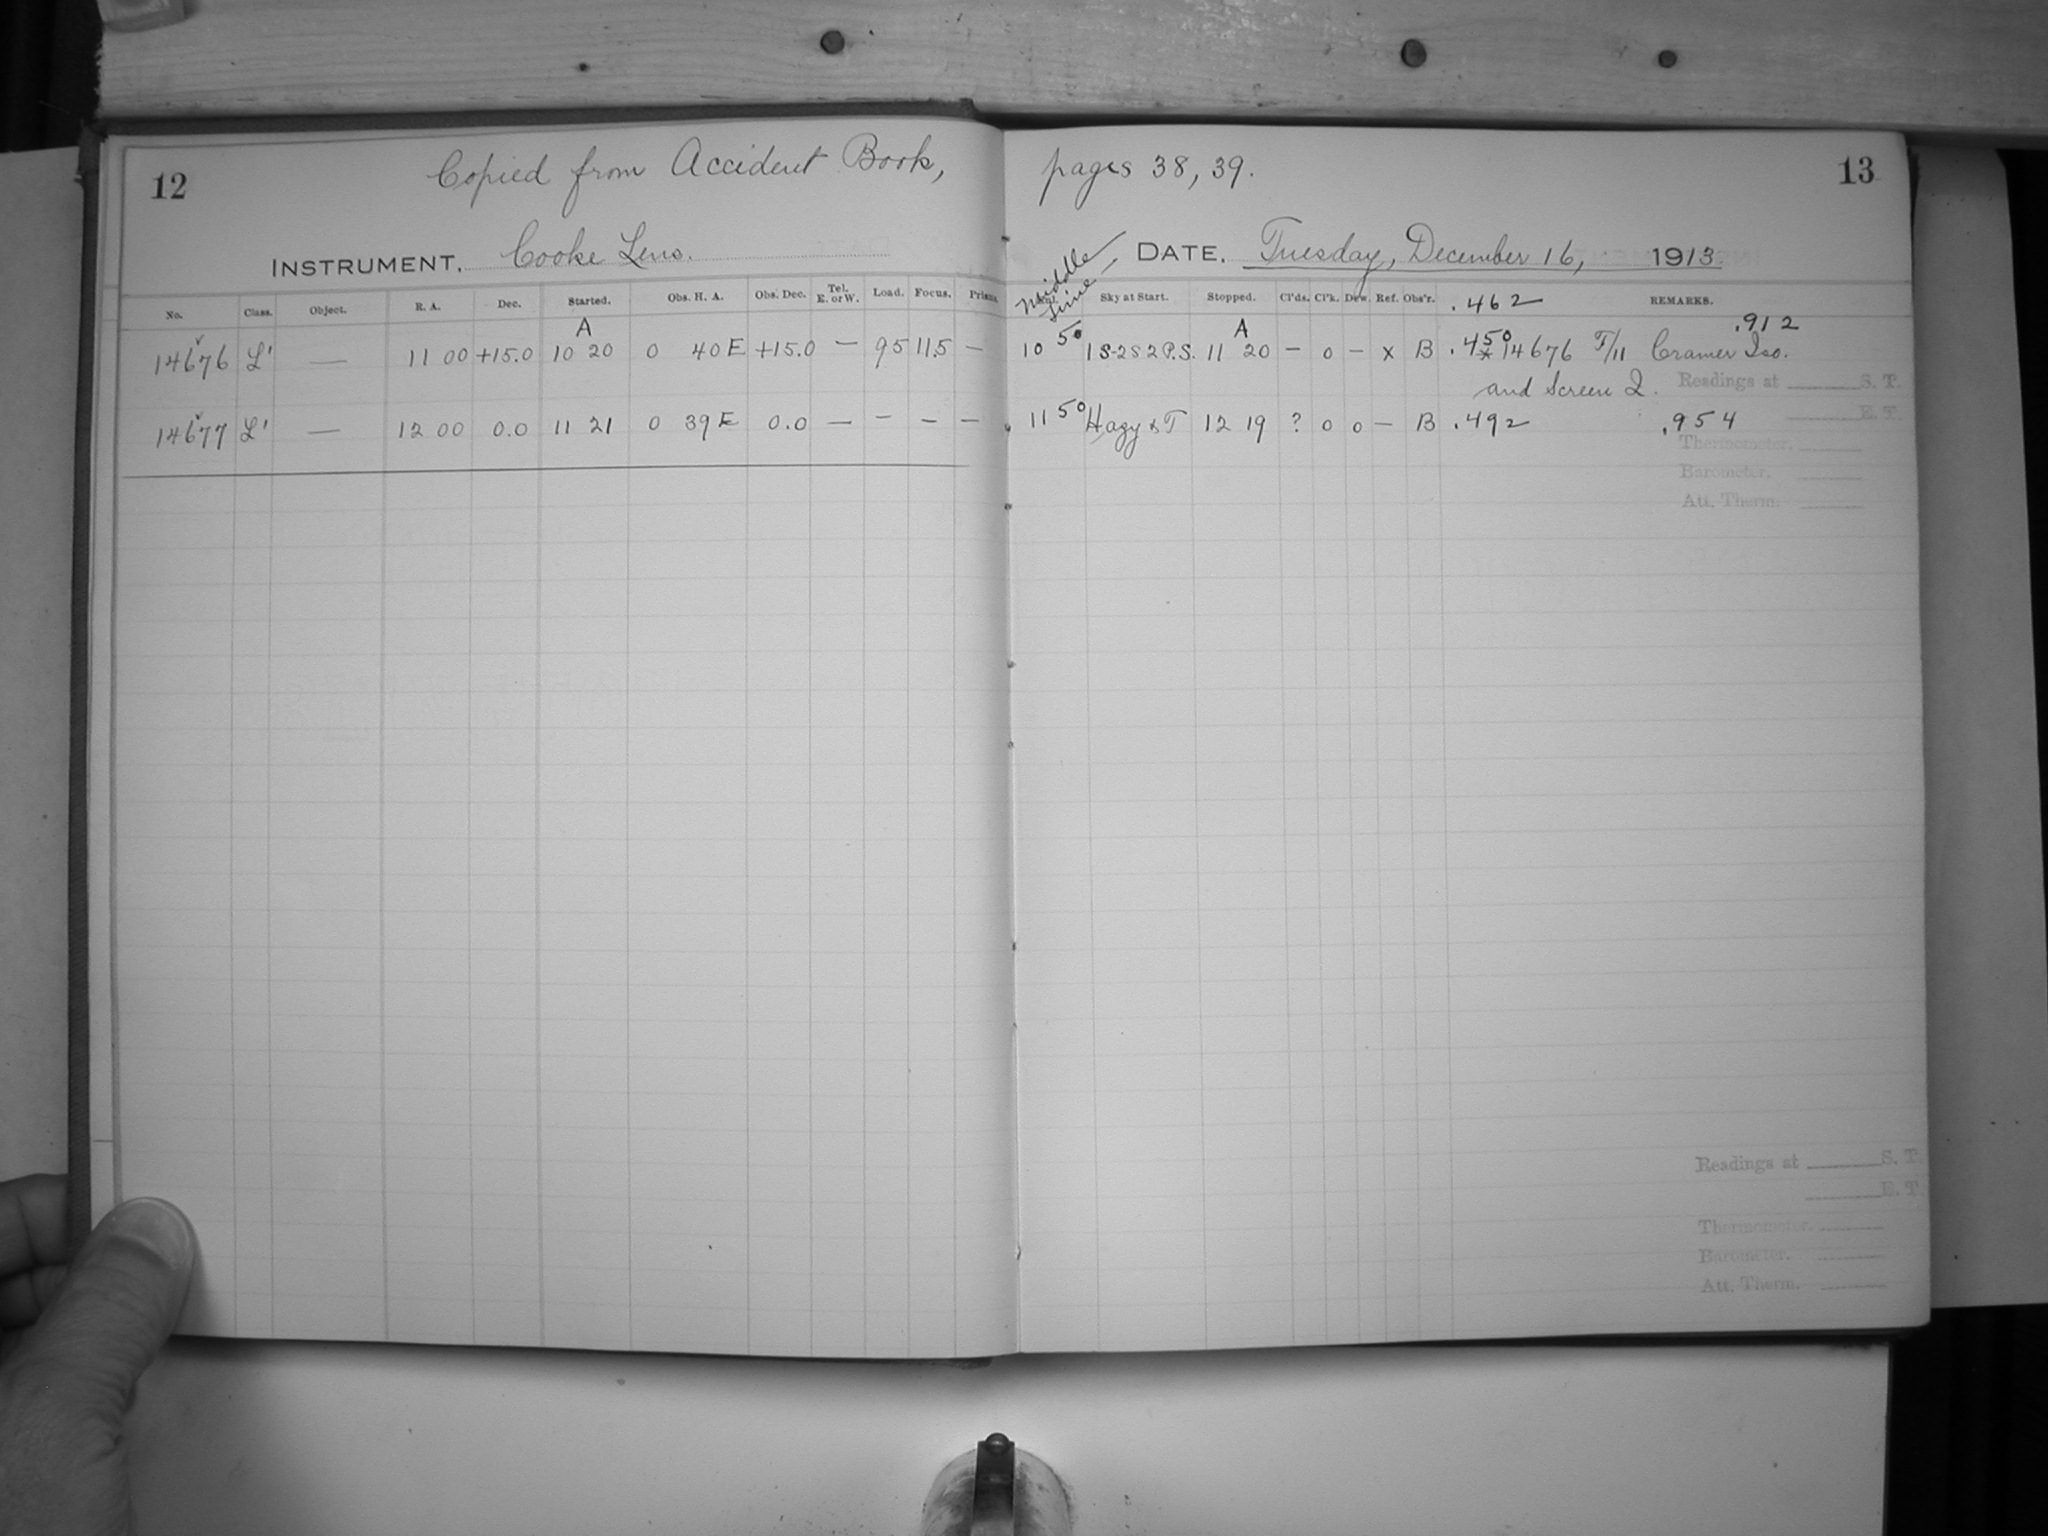 12 Copied from Accident Book, pages 38, 39. 13
INSTRUMENT. Cooke Lens. DATE. Tuesday, December 16, 1913
Middle Time
No. Class. Object. R. A. Dec. Started. Obs. H. A. Obs. Dec. Tel. E. or W. Load. Focus. Prism. Sky at Start. Stopped. Cl'ds. Cl'k. Dew. Ref. Obs'r. .462 REMARKS.
A A .912
14676 L' — 11 00 +15.0 10 20 0 40 E +15.0 — 95 11.5 — 10 50 1S-2S 2P.S. 11 20 — 0 — x B .450 * 14676 T/11 Cramer Iso.
and Screen 2. Readings at S. T.
E. T.
14677 L' — 12 00 0.0 11 21 0 39 E 0.0 — — — — 11 50 Hazy & T 12 19 ? 0 0 — B .492 .954
Thermometer.
Barometer.
Att. Therm.
Readings at S. T.
E. T.
Thermometer.
Barometer.
Att. Therm.